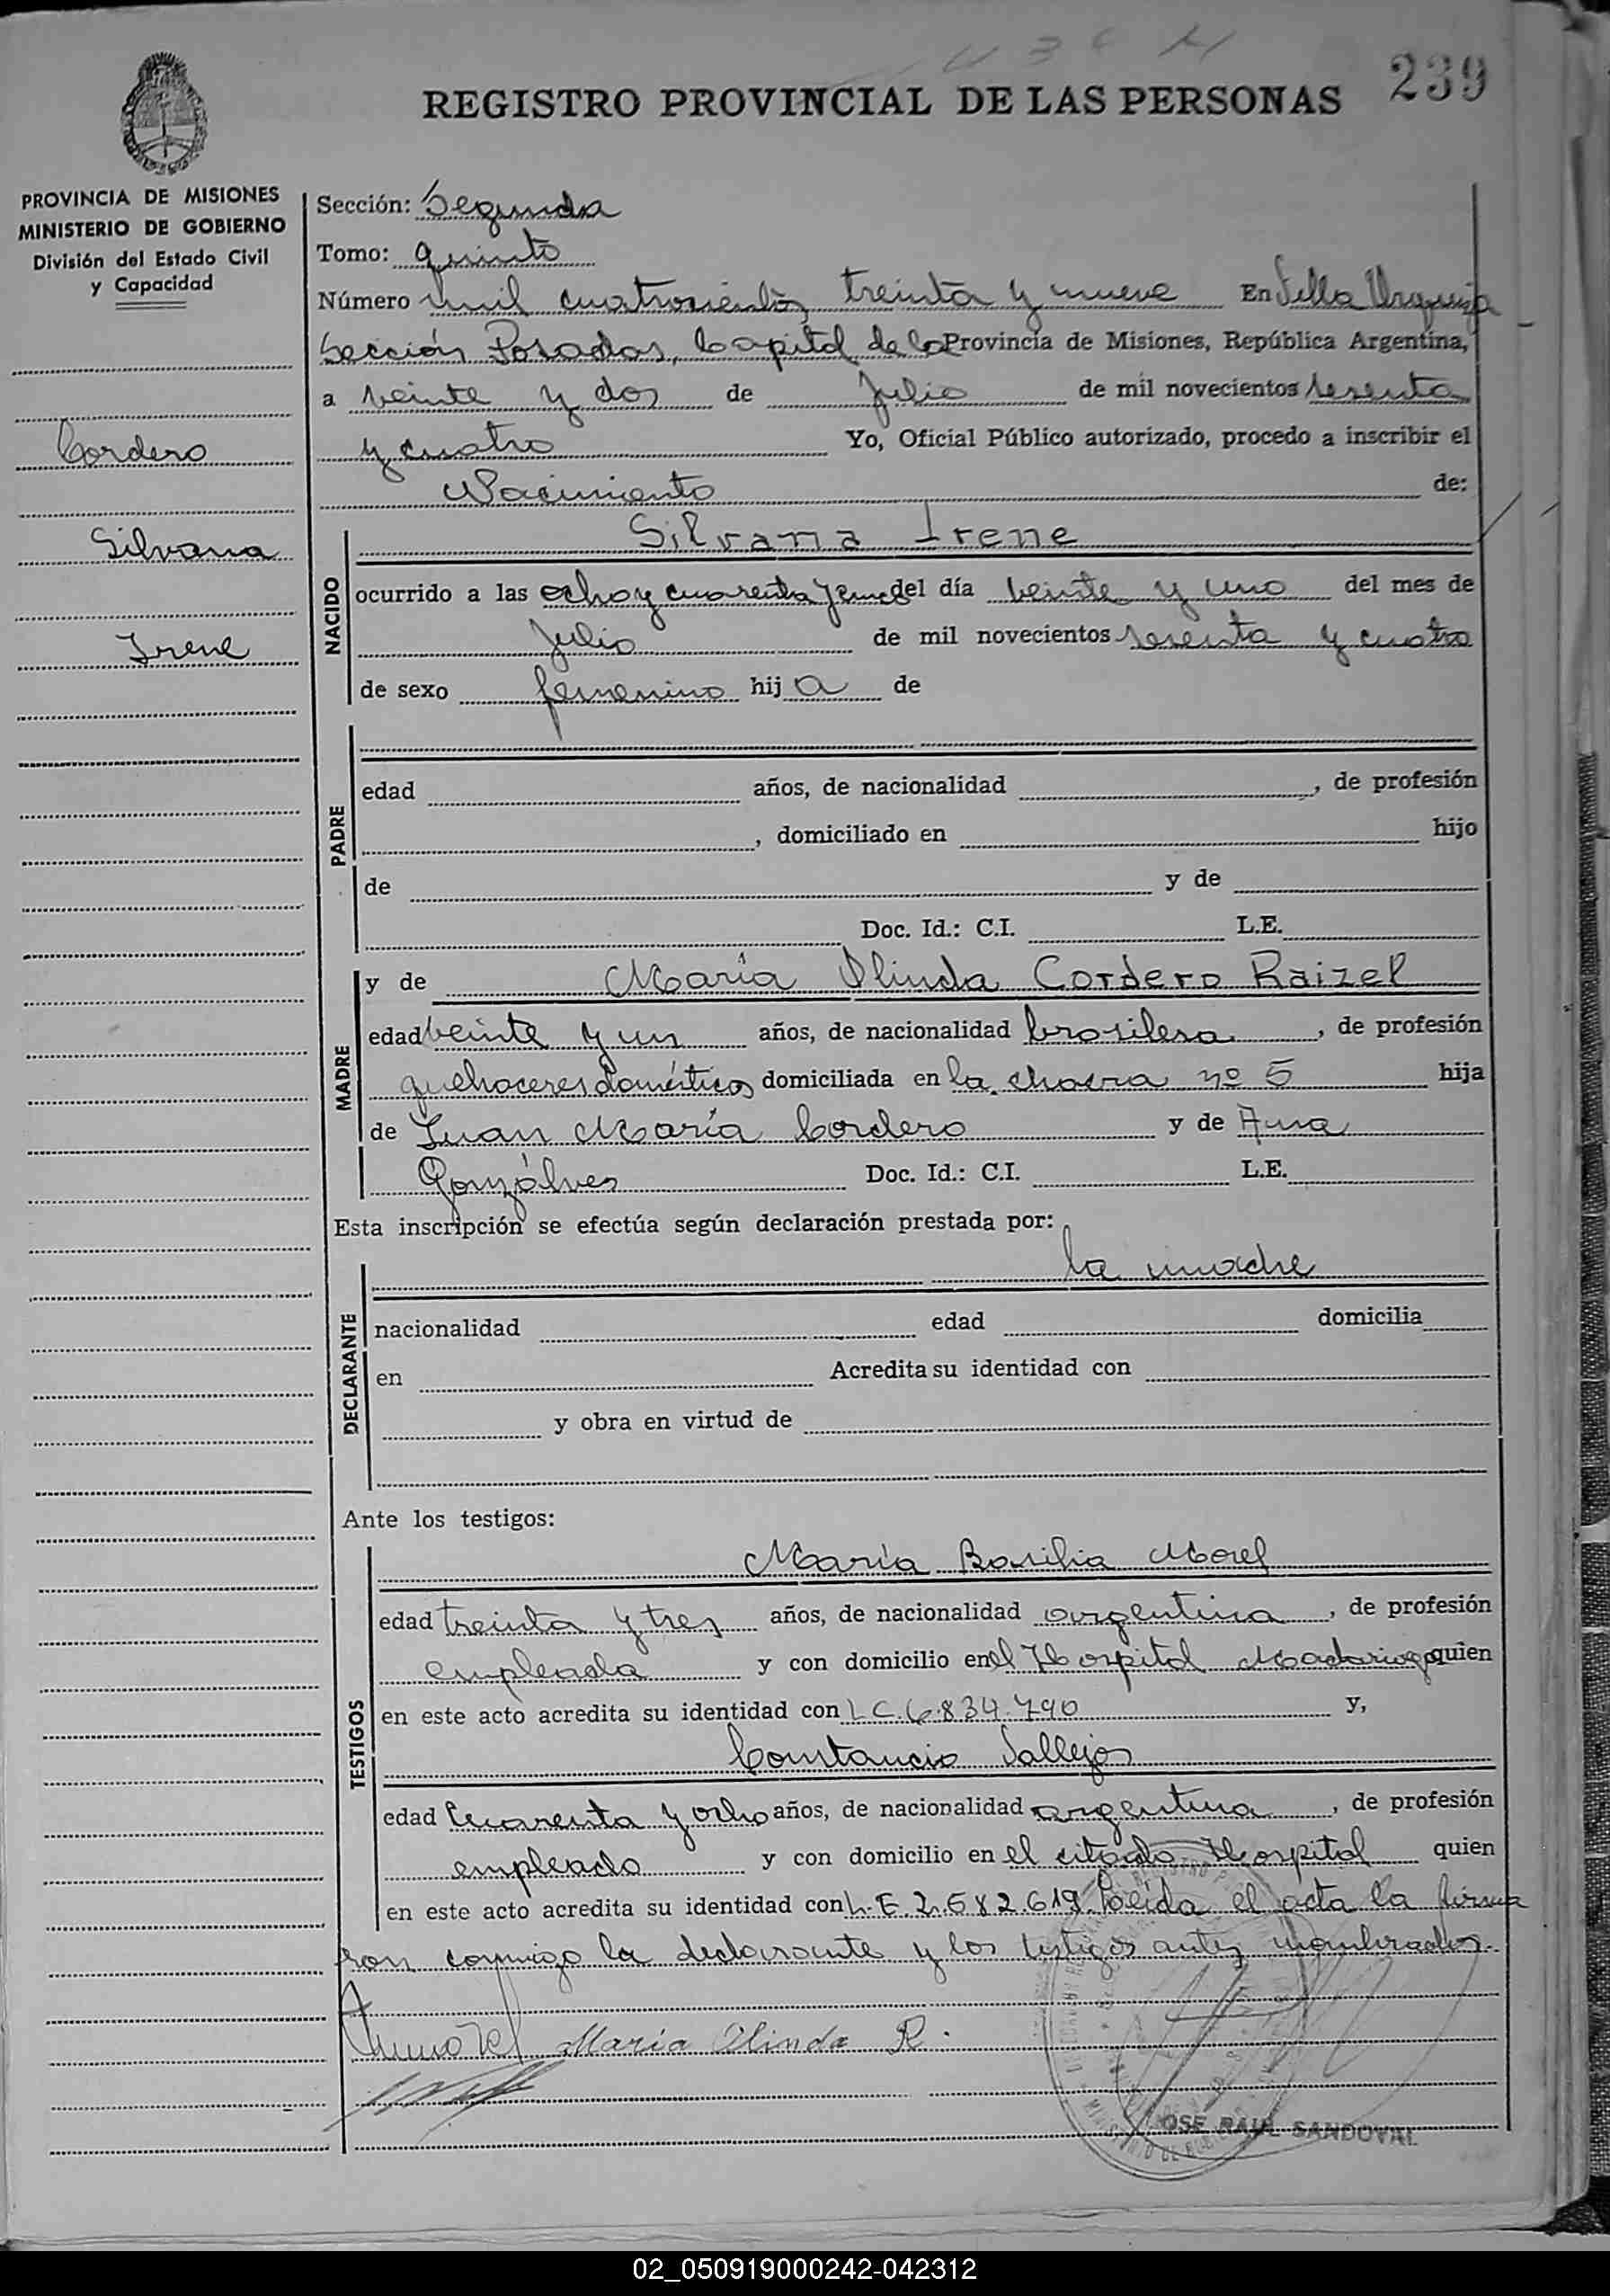 239
REGISTRO PROVINCIAL DE LAS PERSONAS
PROVINCIA DE MISIONES
MINISTERIO DE GOBIERNO
División del Estado Civil
y Capacidad
Cordero
Silvana
Irene
Sección: Segunda
Tomo: quinto
Número mil cuatrocientos treinta y nueve En Villa Urquiza
Sección Posadas, Capital de la Provincia de Misiones, República Argentina,
a veinte y dos de Julio de mil novecientos sesenta
y cuatro Yo, Oficial Público autorizado, procedo a inscribir el
Nacimiento de:
NACIDO
Silvana Irene
ocurrido a las ocho y cuarenta y cinco del día veinte y uno del mes de
Julio de mil novecientos sesenta y cuatro
de sexo femenino hija de
PADRE
edad años, de nacionalidad , de profesión
, domiciliado en hijo
de y de
Doc. Id.: C.I. L.E.
MADRE
y de María Olinda Cordero Raizel
edad veinte y un años, de nacionalidad brasilera , de profesión
quehaceres domésticos domiciliada en la chacra nº 5 hija
de Juan María Cordero y de Ana
Gonzálves Doc. Id.: C.I. L.E.
Esta inscripción se efectúa según declaración prestada por:
DECLARANTE
la madre
nacionalidad edad domicilia
en Acredita su identidad con
y obra en virtud de
Ante los testigos:
TESTIGOS
María Basilia Morel
edad treinta y tres años, de nacionalidad argentina , de profesión
empleada y con domicilio en el Hospital Madariaga quien
en este acto acredita su identidad con L C. 6.834.790 y,
Constancio Vallejos
edad cuarenta y ocho años, de nacionalidad argentina , de profesión
empleado y con domicilio en el citado Hospital quien
en este acto acredita su identidad con L.E. 2.582.619. Leída el acta la firma
ron conmigo la declarante y los testigos antes nombrados.
María Olinda R.
JOSE RAUL SANDOVAL
02_050919000242-042312